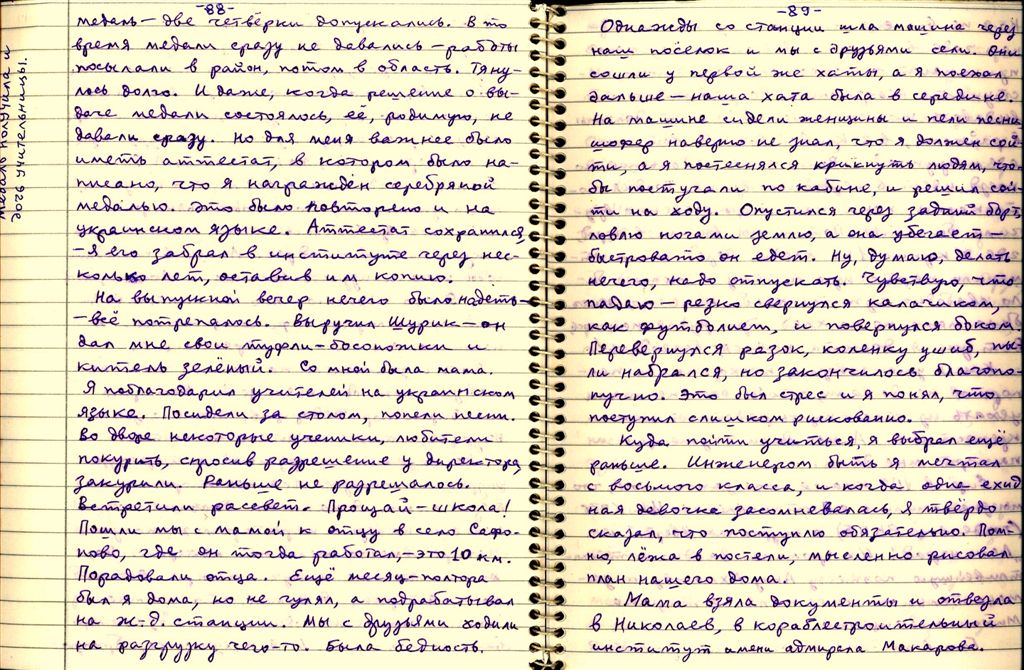 -88-
медаль - две четвёрки допускались. В то
время медали сразу не давались - работы
посылали в район, потом в область. Тяну-
лось долго. И даже, когда решение о вы-
даче медали состоялось, её, родимую, не
давали сразу. Но для меня важнее было
иметь аттестат, в котором было на-
писано, что я награждён серебряной
медалью. Это было повторено и на
украинском языке. Аттестат сохранился,
- я его забрал в институте через нес-
колько лет, оставив им копию.
На выпускной вечер нечего было надеть -
- всё потрепалось. Выручил Шурик - он
дал мне свои туфли-босоножки и
китель зелёный. Со мной была мама.
Я поблагодарил учителей на украинском
языке. Посидели за столом, попели песни.
Во дворе некоторые ученики, любители
покурить, спросив разрешение у директора,
закурили. Раньше не разрешалось.
Встретили рассвет. Прощай - школа!
Пошли мы с мамой к отцу в село Сафо-
ново, где он тогда работал, - это 10 км.
Порадовали отца. Ещё месяц-полтора
был я дома, но не гулял, а подрабатывал
на ж-д. станции. Мы с друзьями ходили
на разгрузку чего-то. Была бедность.
Медаль получила и
дочь учительницы.
-89-
Однажды со станции шла машина через
наш посёлок и мы с друзьями сели. Они
сошли у первой же хаты, а я поехал
дальше - наша хата была в середине.
На машине сидели женщины и пели песни
шофер наверно не знал, что я должен сой-
ти, а я постеснялся крикнуть людям, что-
бы постучали по кабине, и решил сой-
ти на ходу. Опустился через задний борт,
ловлю ногами землю, а она убегает -
быстровато он едет. Ну, думаю, делать
нечего, надо отпускать. Чувствую, что
падаю - резко свернулся калачиком,
как футболист, и повернулся боком.
Перевернулся разок, коленку ушиб, пы-
ли набрался, но закончилось благопо-
лучно. Это был стрес и я понял, что
поступил слишком рискованно.
Куда пойти учиться, я выбрал ещё
раньше. Инженером быть я мечтал
с восьмого класса, и когда одна ехид
ная девочка засомневалась, я твёрдо
сказал, что поступлю обязательно. Пом-
ню, лёжа в постели, мысленно рисовал
план нашего дома.
Мама взяла документы и отвезла
в Николаев, в кораблестроительный
институт имени адмирала Макарова.